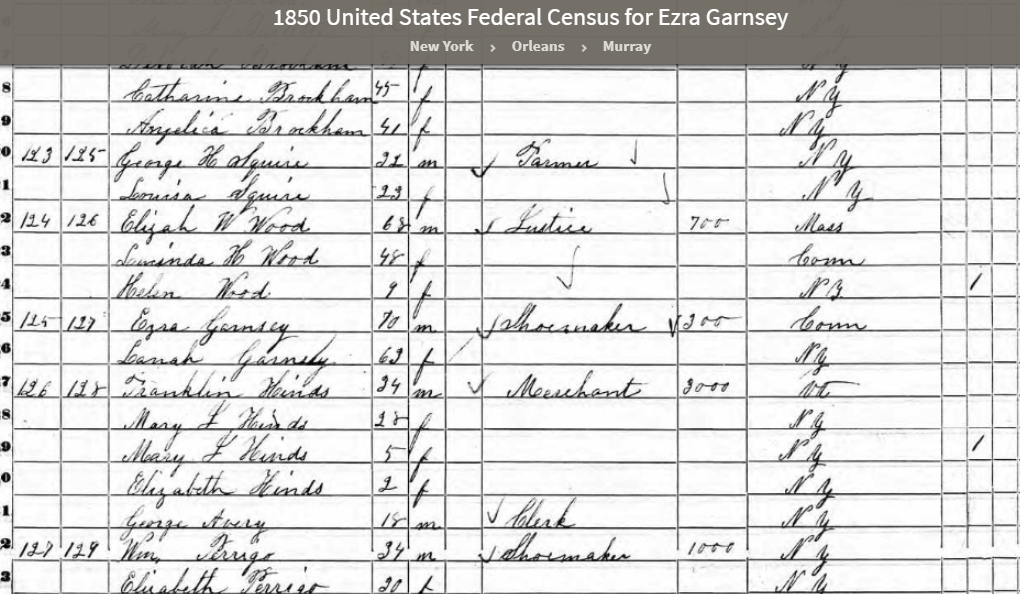 1850 United States Federal Census for Ezra Garnsey
New York › Orleans › Murray
8 Catharine Brockham 45 f N Y
9 Angelica Brockham 41 f N Y
0 123 125 George H Squire 22 m Farmer N Y
1 Louisa Squire 23 f N Y
2 124 126 Elijah W Wood 68 m Justice 700 Mass
3 Lucinda H Wood 48 f Conn
4 Helen Wood 9 f 1
5 125 127 Ezra Garnsey 70 m Shoesmaker 200 Conn
6 Lanah Garnsey 62 f N Y
7 126 128 Franklin Hinds 34 m Merchant 3000 Vt
8 Mary F Hinds 28 f N Y
9 Mary F Hinds 5 f N Y 1
0 Elizabeth Hinds 2 f N Y
1 George Avery 18 m Clerk N Y
2 127 129 Wm. Perrigo 34 m Shoemaker 1000 N Y
3 Elizabeth Perrigo 30 f N Y